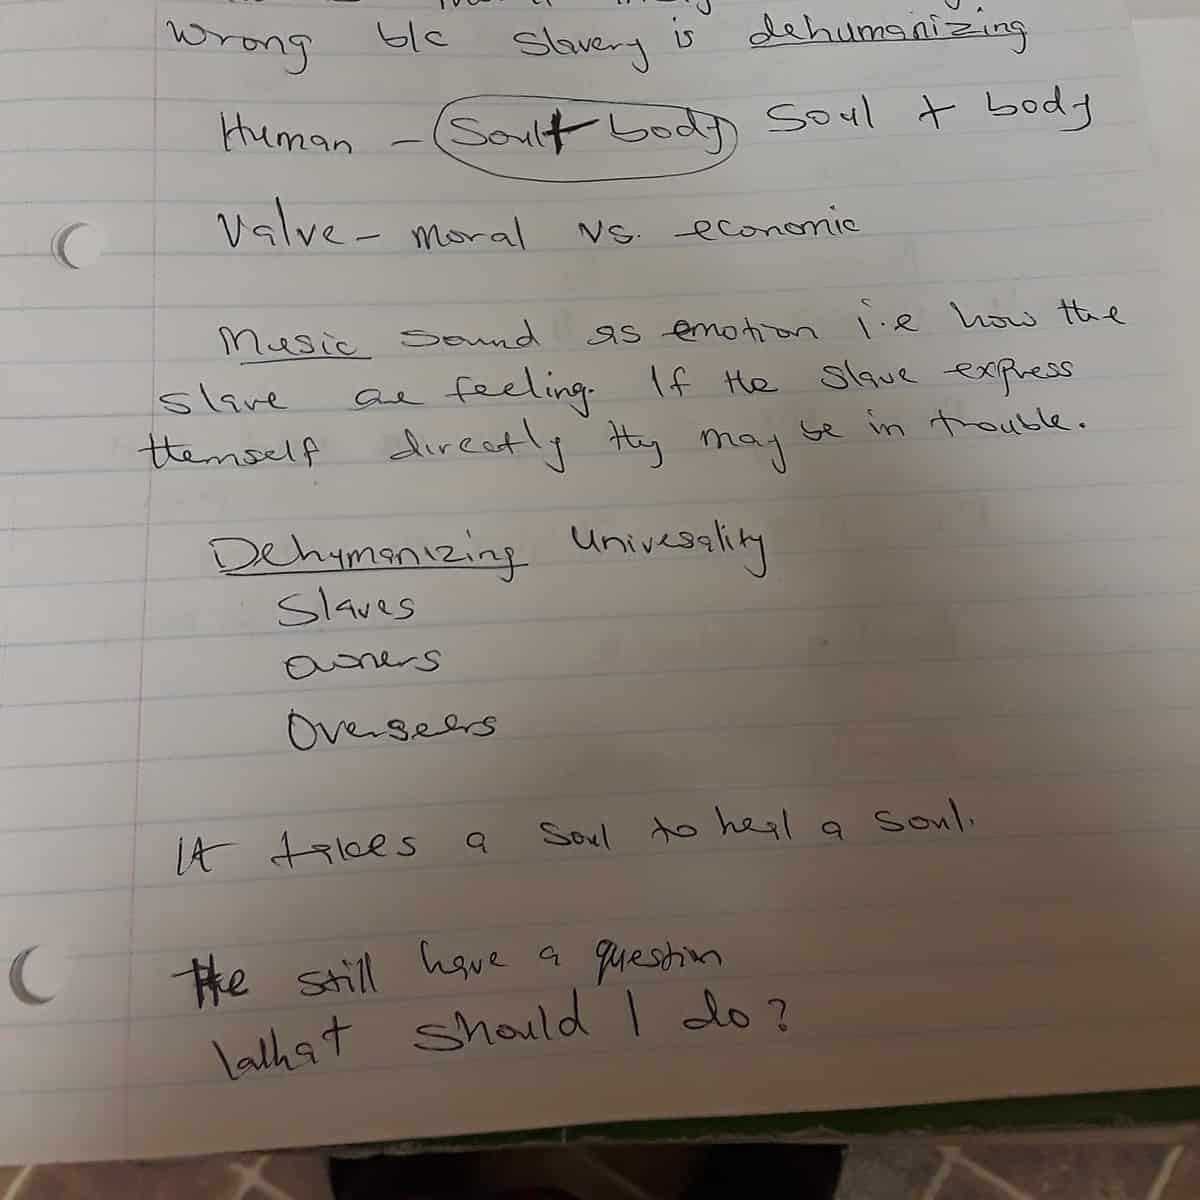 wrong b/c slavery is dehumanizing
Human - (Soul + body) Soul + body
Value - moral vs. economic
Music sound as emotion i.e how the
slave are feeling. If the slave express
themself directly they may be in trouble.
Dehumanizing Univesality
Slaves
owners
Overseers
It takes a soul to heal a soul.
He still have a question
What should I do?